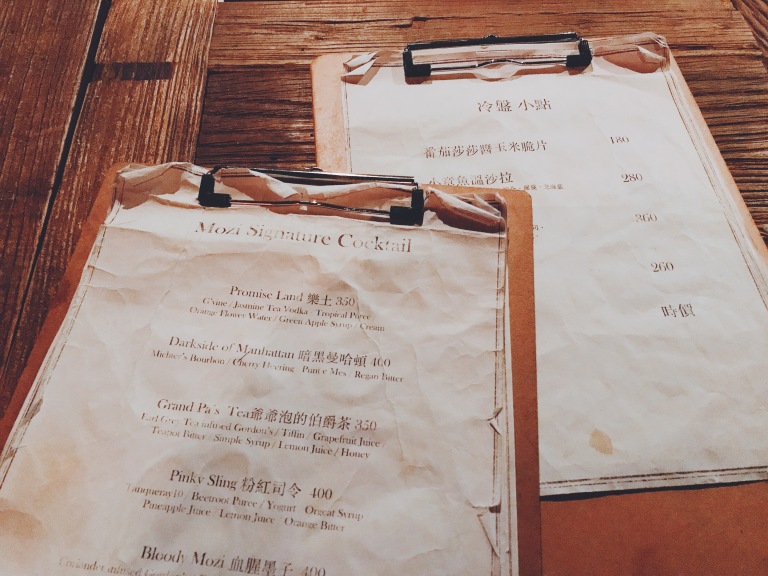 Mozi Signature Cocktail
Promise Land 樂土 350
G'vine / Jasmine Tea Vodka / Tropical Puree
Orange Flower Water / Green Apple Syrup / Cream
Darkside of Manhattan 暗黑曼哈頓 400
Michter's Bourbon / Cherry Heering / Punt e Mes / Regan Bitter
Grand Pa's Tea爺爺泡的伯爵茶 350
Earl Grey Tea infused Gordon's / Tiffin / Grapefruit Juice /
Teapot Bitter / Simple Syrup / Lemon Juice / Honey
Pinky Sling 粉紅司令 400
Tanqueray10 / Beetroot Puree / Yogurt / Orgeat Syrup
Pineapple Juice / Lemon Juice / Orange Bitter
Bloody Mozi 血腥墨子 400
Coriander infused
冷盤 小點
番茄莎莎醬玉米脆片 180
小章魚溫沙拉 280
360
260
時價